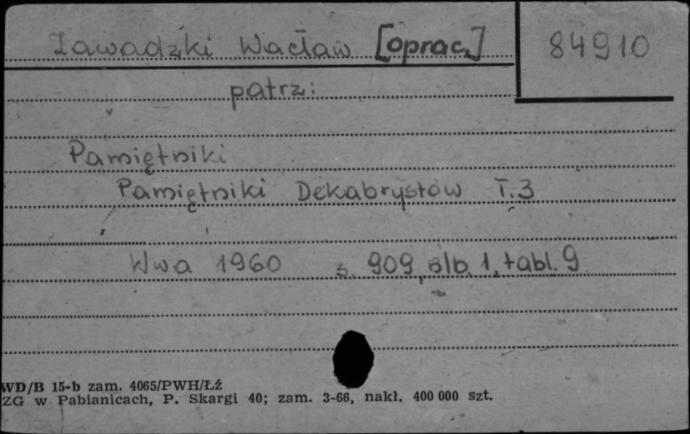 Zawadzki Wacław [oprac.] 84910
patrz:
Pamiętniki
Pamiętniki Dekabrystów T.3
Wwa 1960 s. 909, slb 1, tabl. 9
WD/B 15-b zam. 4065/PWH/Łź
ZG w Pabianicach, P. Skargi 40; zam. 3-66, nakł. 400 000 szt.